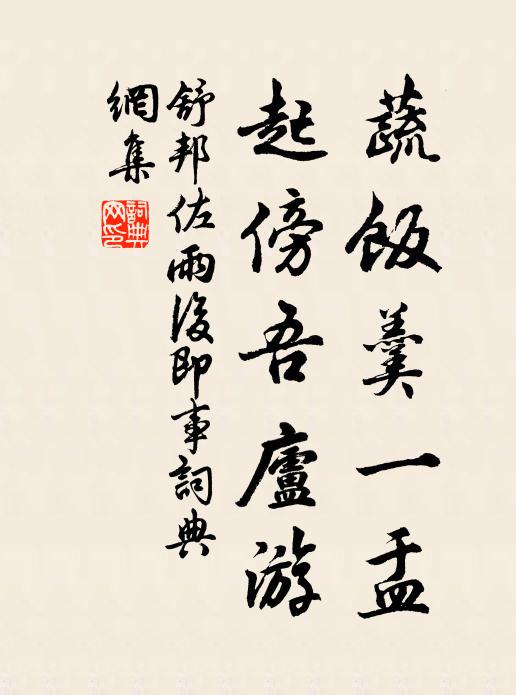 蔬飯羹一盂
起傍吾廬游
舒邦佐雨後即事詞典
網集
詞典
网印